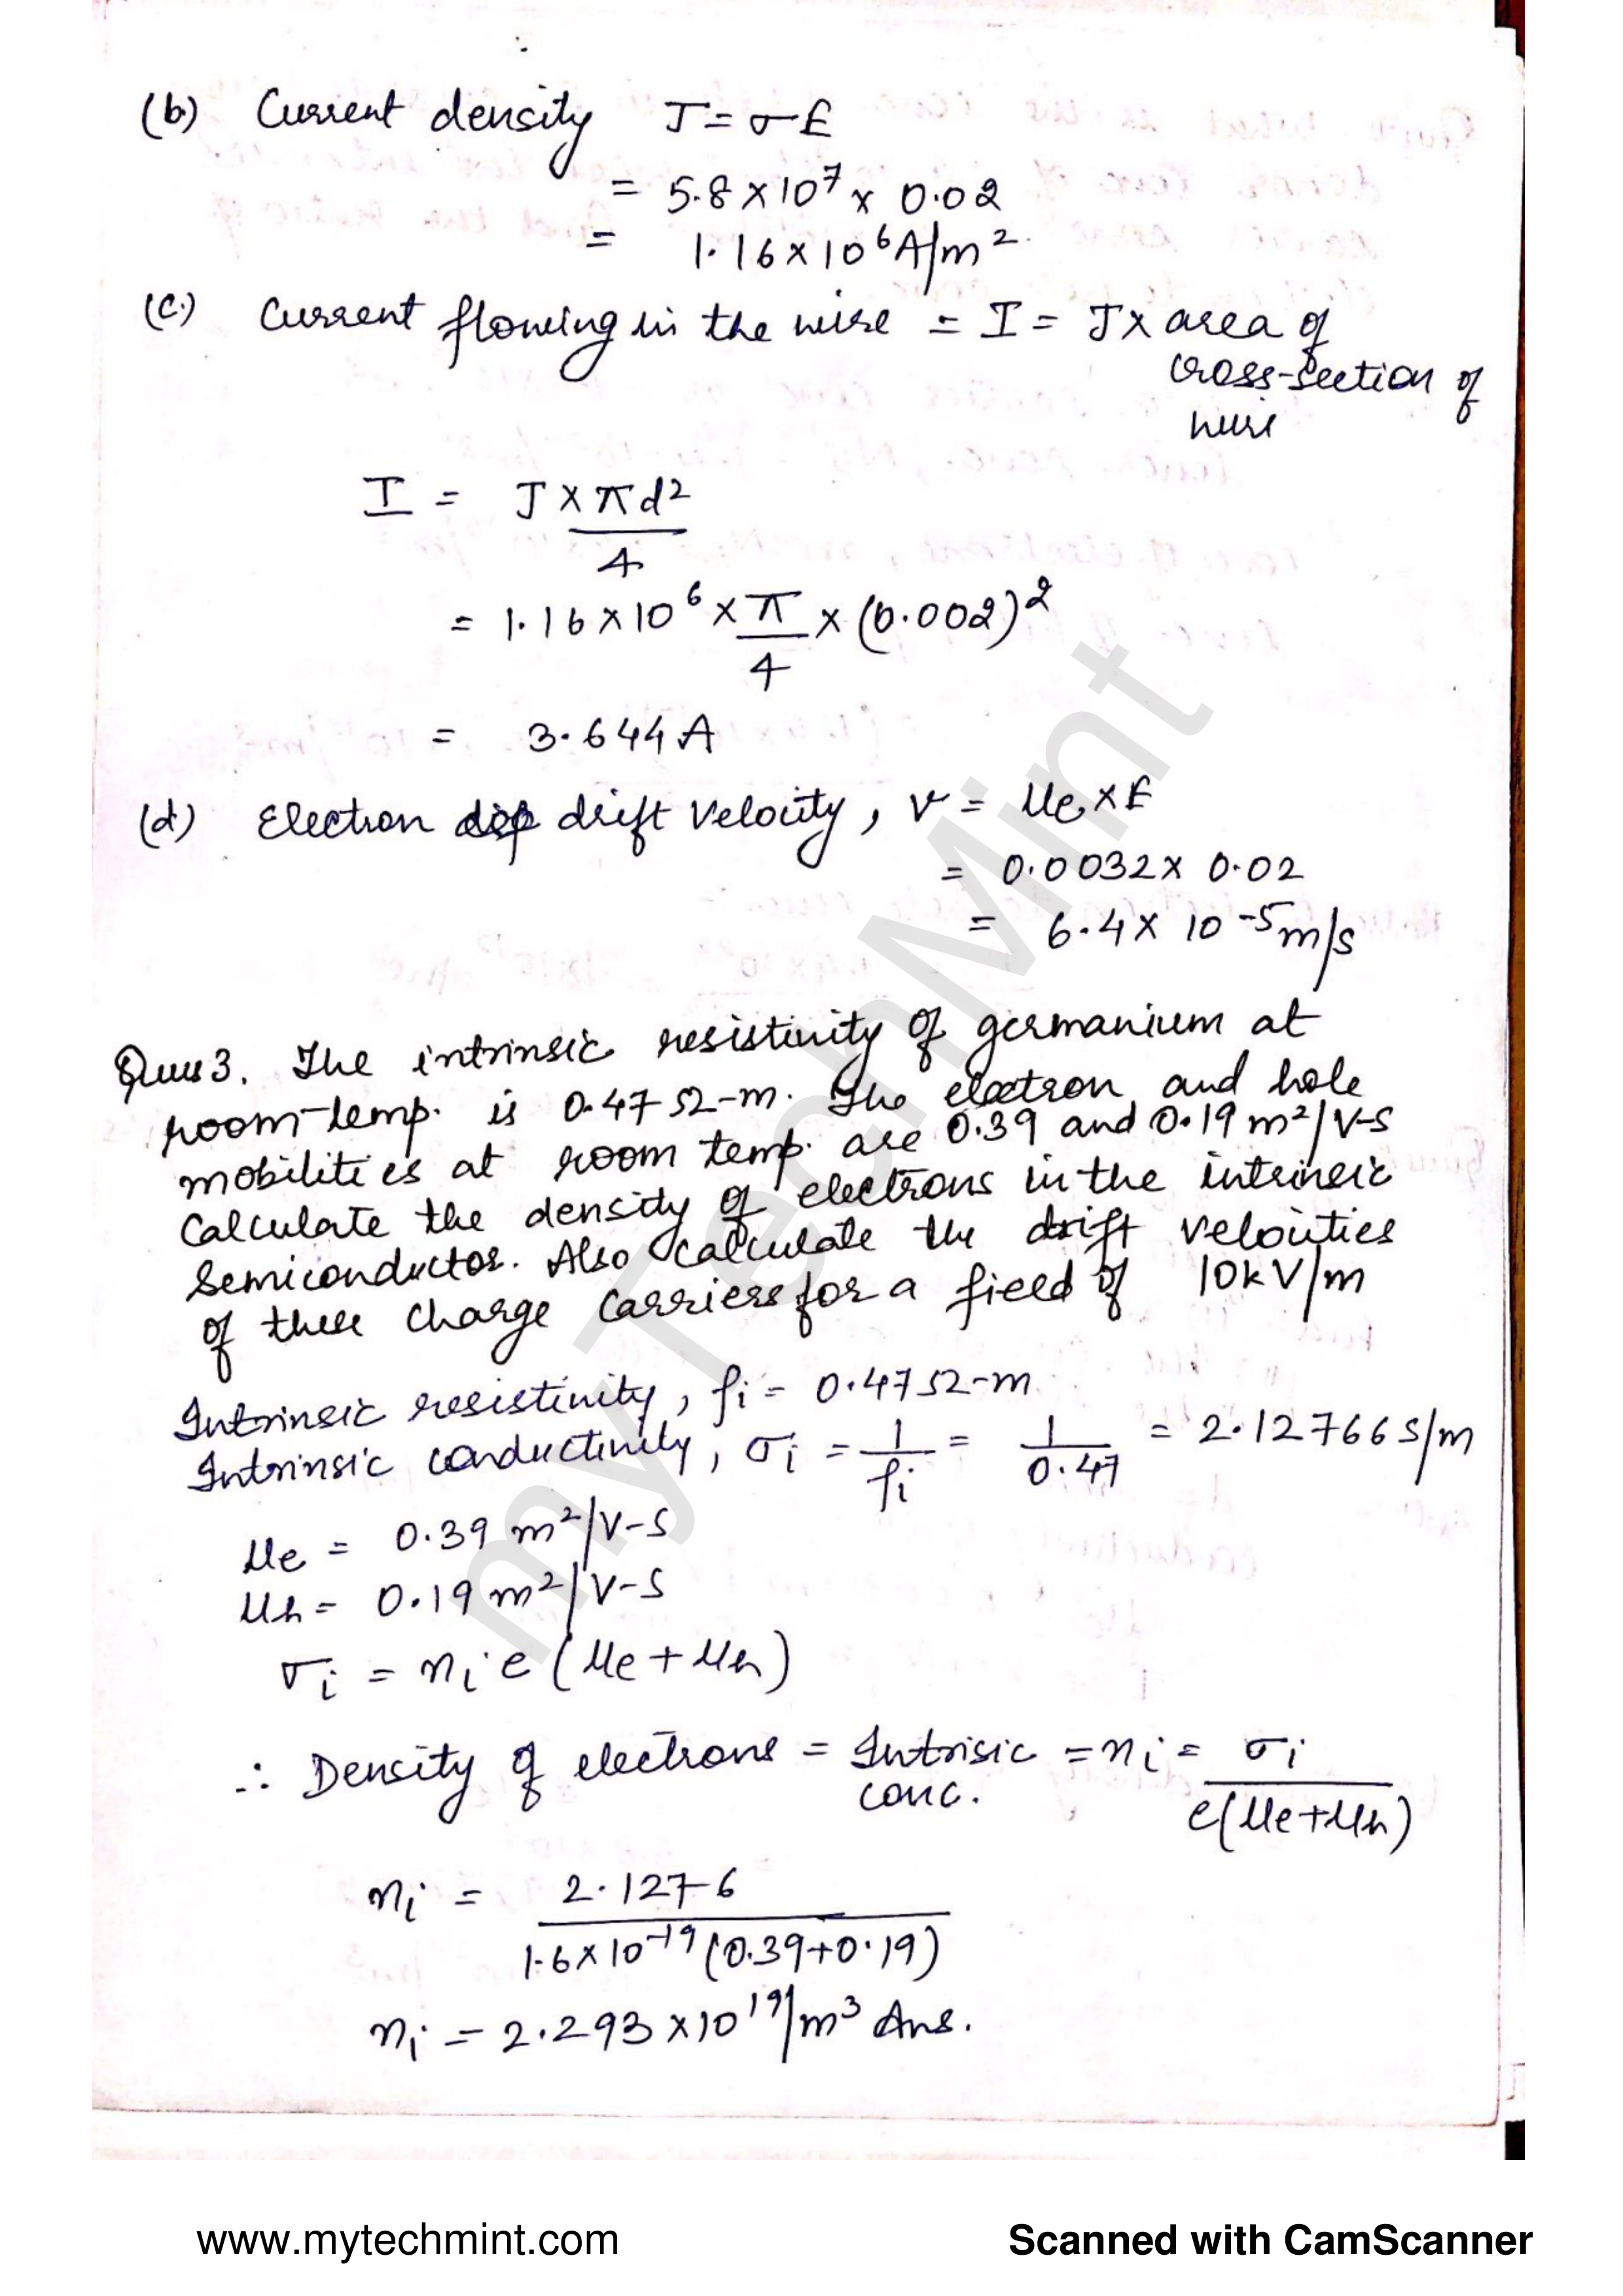 (b) Current density J = σE
= 5.8 × 10⁷ × 0.02
= 1.16 × 10⁶ A/m².
(c) Current flowing in the wire = I = J × area of
cross-section of
wire
I = J × πd²
4
= 1.16 × 10⁶ × π/4 × (0.002)²
= 3.644 A
(d) Electron drift velocity, v = μe × E
= 0.0032 × 0.02
= 6.4 × 10⁻⁵ m/s
Ques 3. The intrinsic resistivity of germanium at
room-temp. is 0.47 Ω-m. The electron and hole
mobilities at room temp. are 0.39 and 0.19 m²/V-S
Calculate the density of electrons in the intrinsic
semiconductor. Also calculate the drift velocities
of these charge carriers for a field of 10kV/m
Intrinsic resistivity, ρi = 0.47 Ω-m
Intrinsic conductivity, σi = 1/ρi = 1/0.47 = 2.12766 S/m
μe = 0.39 m²/V-S
μh = 0.19 m²/V-S
σi = ni e (μe + μh)
∴ Density of electrons = Intrisic = ni = σi
conc. e(μe+μh)
ni = 2.1276
1.6 × 10⁻¹⁹ (0.39+0.19)
ni = 2.293 × 10¹⁹/m³ Ans.
myTechMint
www.mytechmint.com Scanned with CamScanner